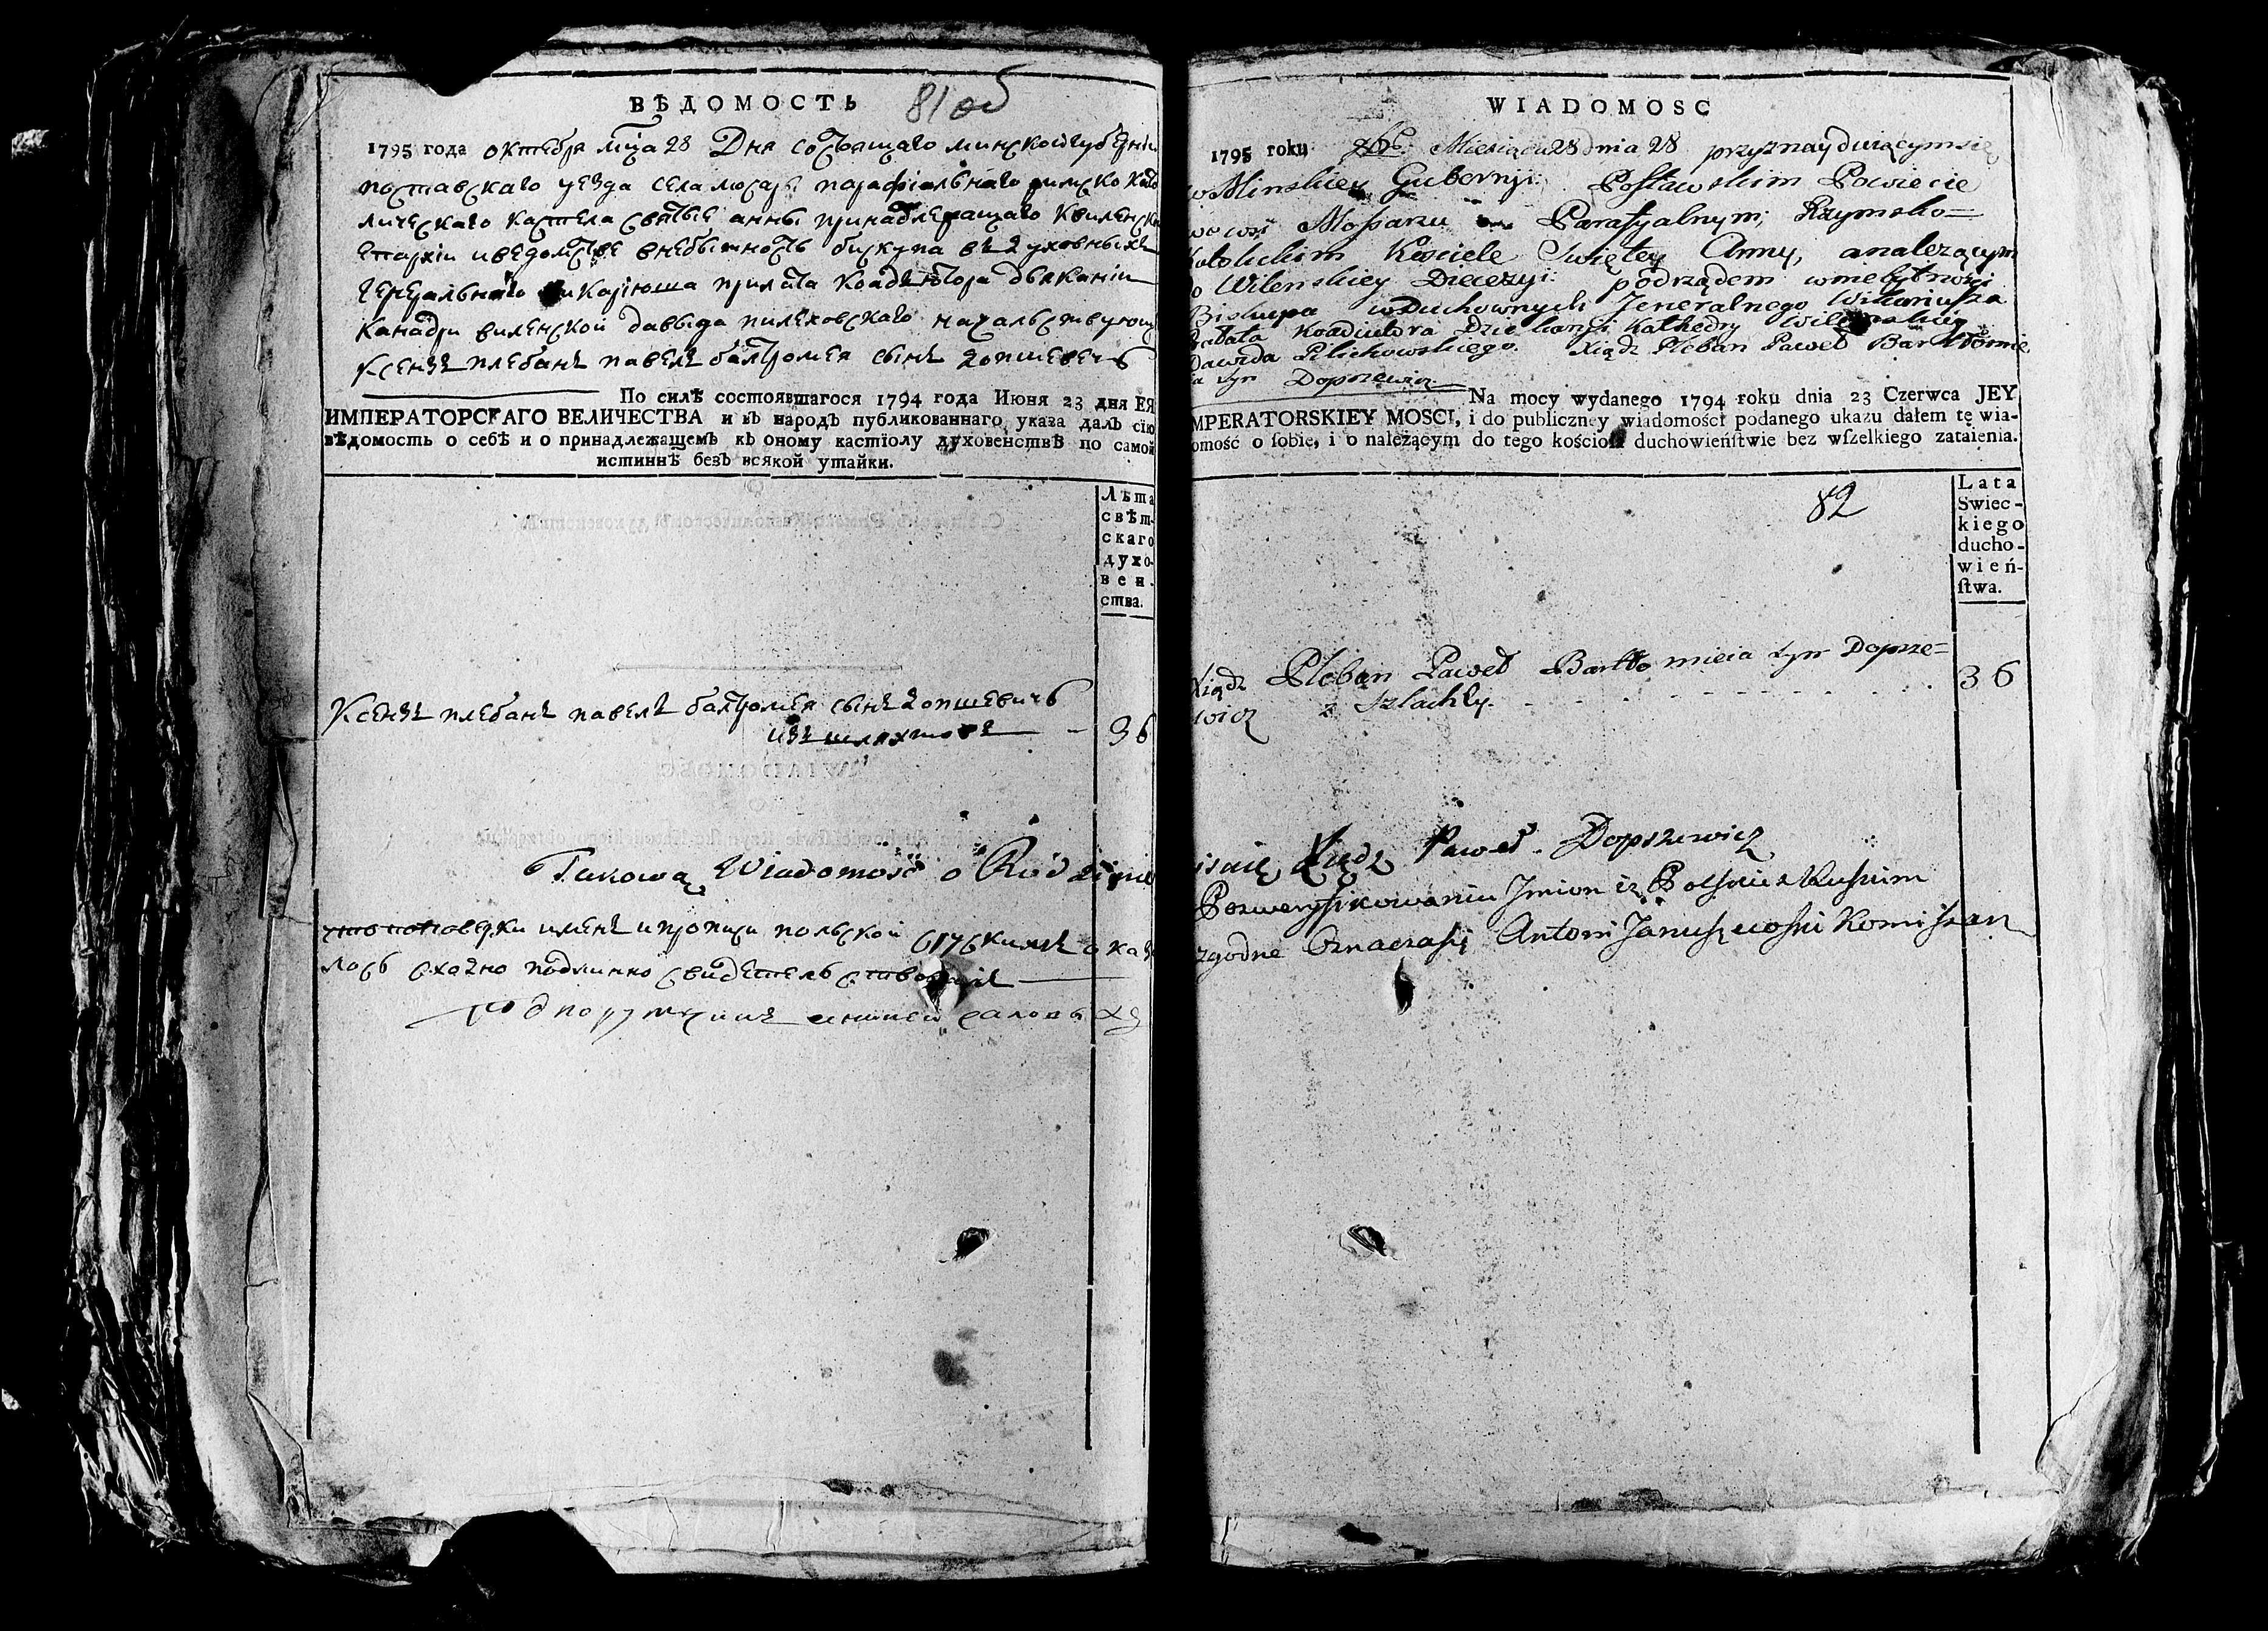 ВѢДОМОСТЬ
81 об
1795 года октебря мца 28 Дня состоящаго минской губерніи
поставскаго уезда села мосаря парафіальнаго римско като
лическаго кастела святые анны принадлежащаго квиленско
епархіи иведомстве внебытность бискупа въ духовныхъ
генеральнаго викаріюша прилата коадъютора дзеканіи
канадри виленской давыда пилеховскаго начальствующи
ксензъ плебанъ павелъ балтромея сынъ допшевечь
По силѣ состоявшагося 1794 года Июня 23 дня ЕЯ
ИМПЕРАТОРСКАГО ВЕЛИЧЕСТВА и въ народъ публикованнаго указа далъ сію
вѣдомость о себѣ и о принадлежащемъ къ оному кастіолу духовенствѣ по самой
истиннѣ безъ всякой утайки.
Лѣта
свѣт-
скаго
духо-
вен-
ства.
Ксензъ плебанъ павелъ балтромея сынъ допшевичь
изъ шляхтовъ - 36
Takową Wiadomość o
что поповерки именъ ипрописи польской срускимъ оказа
лось сходно подлинно свидетельствовалъ
Подпорутчикъ
WIADOMOSC
1795 roku 8bra Miesiąca 28 dnia 28 przyznayduiącym się
w Minskiey Gubernji: Postawskim Powiecie
we wsi Mossarzu Parafyalnym; Rzymsko=
Katolickim Kościele Swiętey Anny, analezącym
do Wilenskiey Diecezyi: podrządem wniebytności
Biskupa w Duchownych Jeneralnego Wikariusza
Prałata Koadiutora Dziekanji Kathedry Wilenskiey
Dawida Pilichowskiego. Xiądz Pleban Paweł Bartłomie
ia syn Dopszewicz
Na mocy wydanego 1794 roku dnia 23 Czerwca JEY
MPERATORSKIEY MOSCI, i do publiczney wiadomości podanego ukazu dałem tę wia-
omość o ſobie, i o należącym do tego kościoła duchowieńſtwie bez wſzelkiego zataienia.
82
Lata
Swiec-
kiego
ducho-
wień-
ſtwa.
Xiądz Pleban Paweł Bartłomieia syn Dopsze=
wicz z Szlachty. 36
isuię Xiądz Paweł Dopszewicz
Pozweryfikowaniu Jmion iz Polskie z Ruskim
zgodne Oznaczasię Antoni Januszewski Komissarz